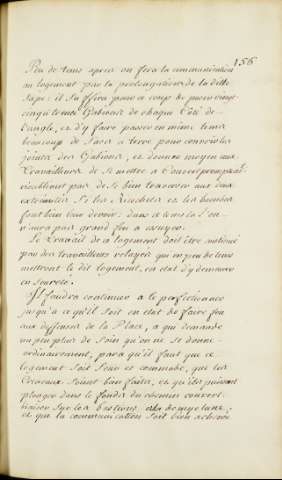 156
Peu de tems apres on fera la communication
au logement par la prolongation de la ditte
Sape; il Suffira pour ce coup de poser vingt
cinq à trente Gabions de chaque Côté de
L'angle, et d'y faire passer en même tems
beaucoup de Sacs a terre pour couvrir les
joints des Gabions, et donner moyen aux
Travailleurs de Se mettre a Couvert promptement
n'oubliant pas de Se bien traverser aux deux
extremités Si les Ricochets et les bombes
font bien leur devoir: dans ce tems la l'on
n'aura pas grand feu a essuyer.
Le Travail de ce logement doit être continué
par des travailleurs relayés qui en peu de tems
mettront le dit logement, en etat d'y demeurer
en Seureté.
Il faudra continuer a le perfectionner
jusqu'à ce qu'il Soit en etat de faire feu
aux deffenses de la Place, a qui demande
un peu plus de Soin qu'on ne Se donne
ordinairement, parce qu'il faut que ce
logement Soit Seur et commode, que les
Creneaux Soient bien faits, et qu'ils puissent
plonger dans le fonds du chemin couvert
baisser Sur les bastions et la demy lune;
et que la communication Soit bien achevée